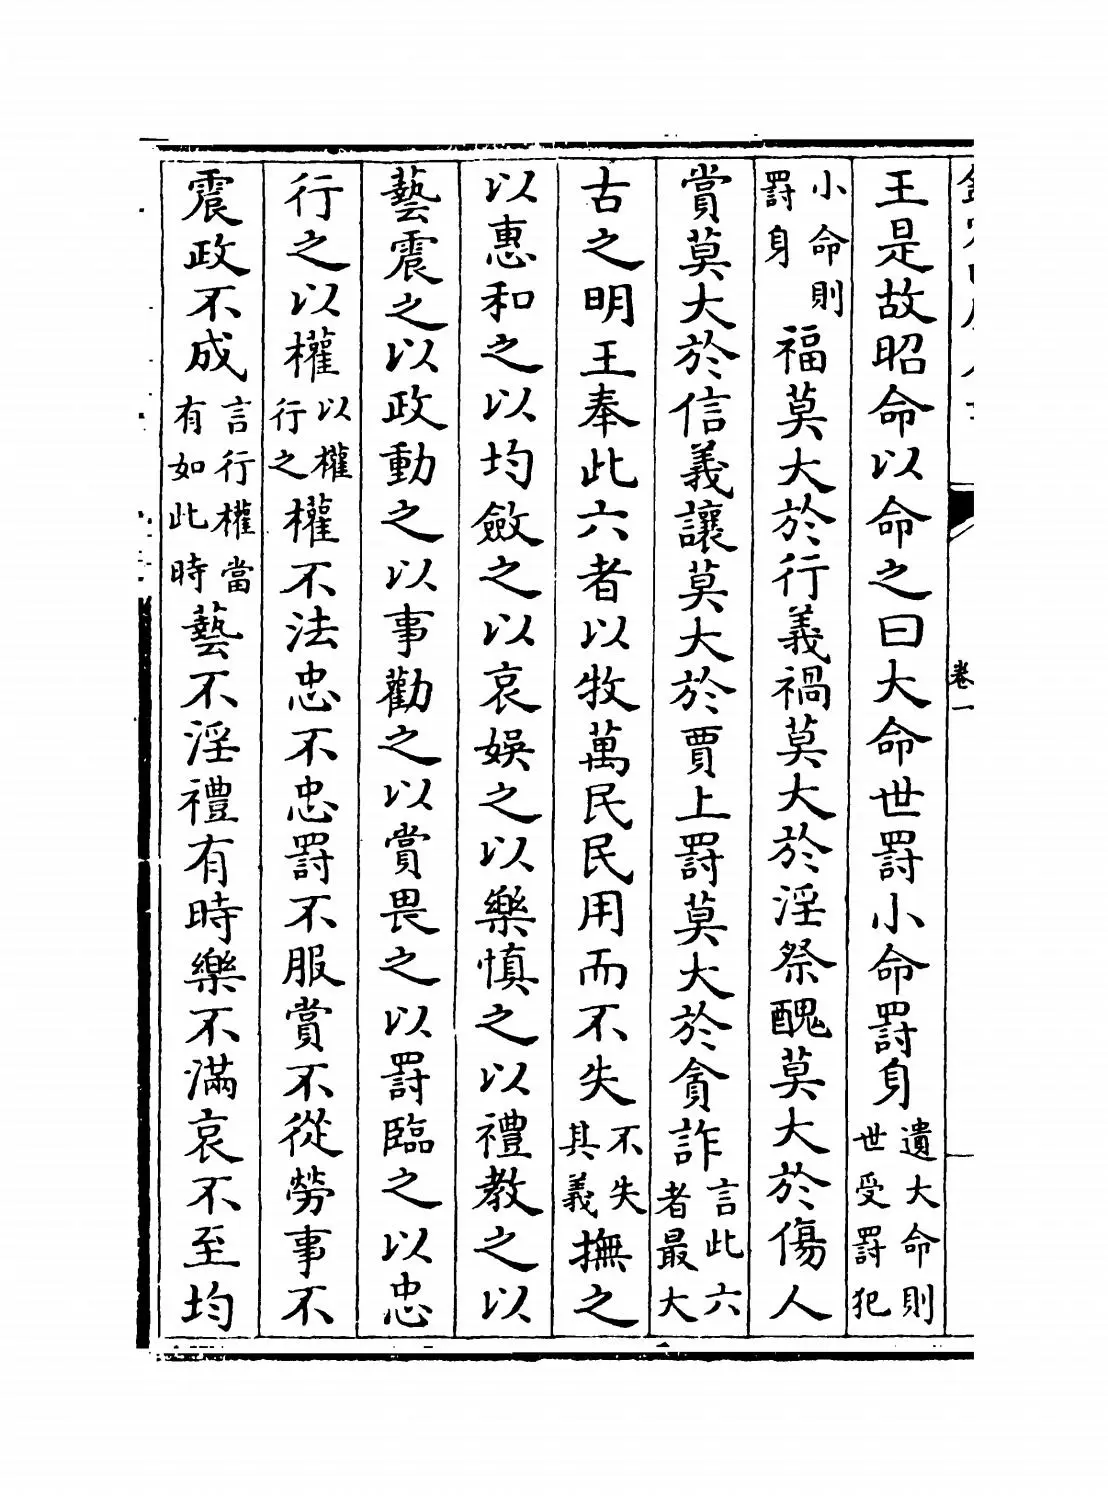 卷一
王是故昭命以命之曰大命世罰小命罰身遺大命則世受罰犯
小命則罰身福莫大於行義禍莫大於淫祭醜莫大於傷人
賞莫大於信義讓莫大於賈上罰莫大於貪詐言此六者最大
古之明王奉此六者以牧萬民民用而不失不失其義撫之
以惠和之以均斂之以哀娛之以樂慎之以禮教之以
藝震之以政動之以事勸之以賞畏之以罰臨之以忠
行之以權以權行之權不法忠不忠罰不服賞不從勞事不
震政不成言行權當有如此時藝不淫禮有時樂不滿哀不至均